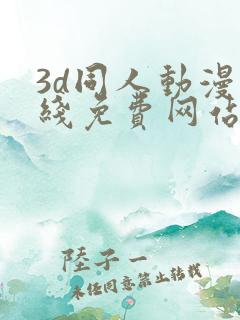 3d同人動漫
綫免費网佔
陸子一
未任同意禁止轉載